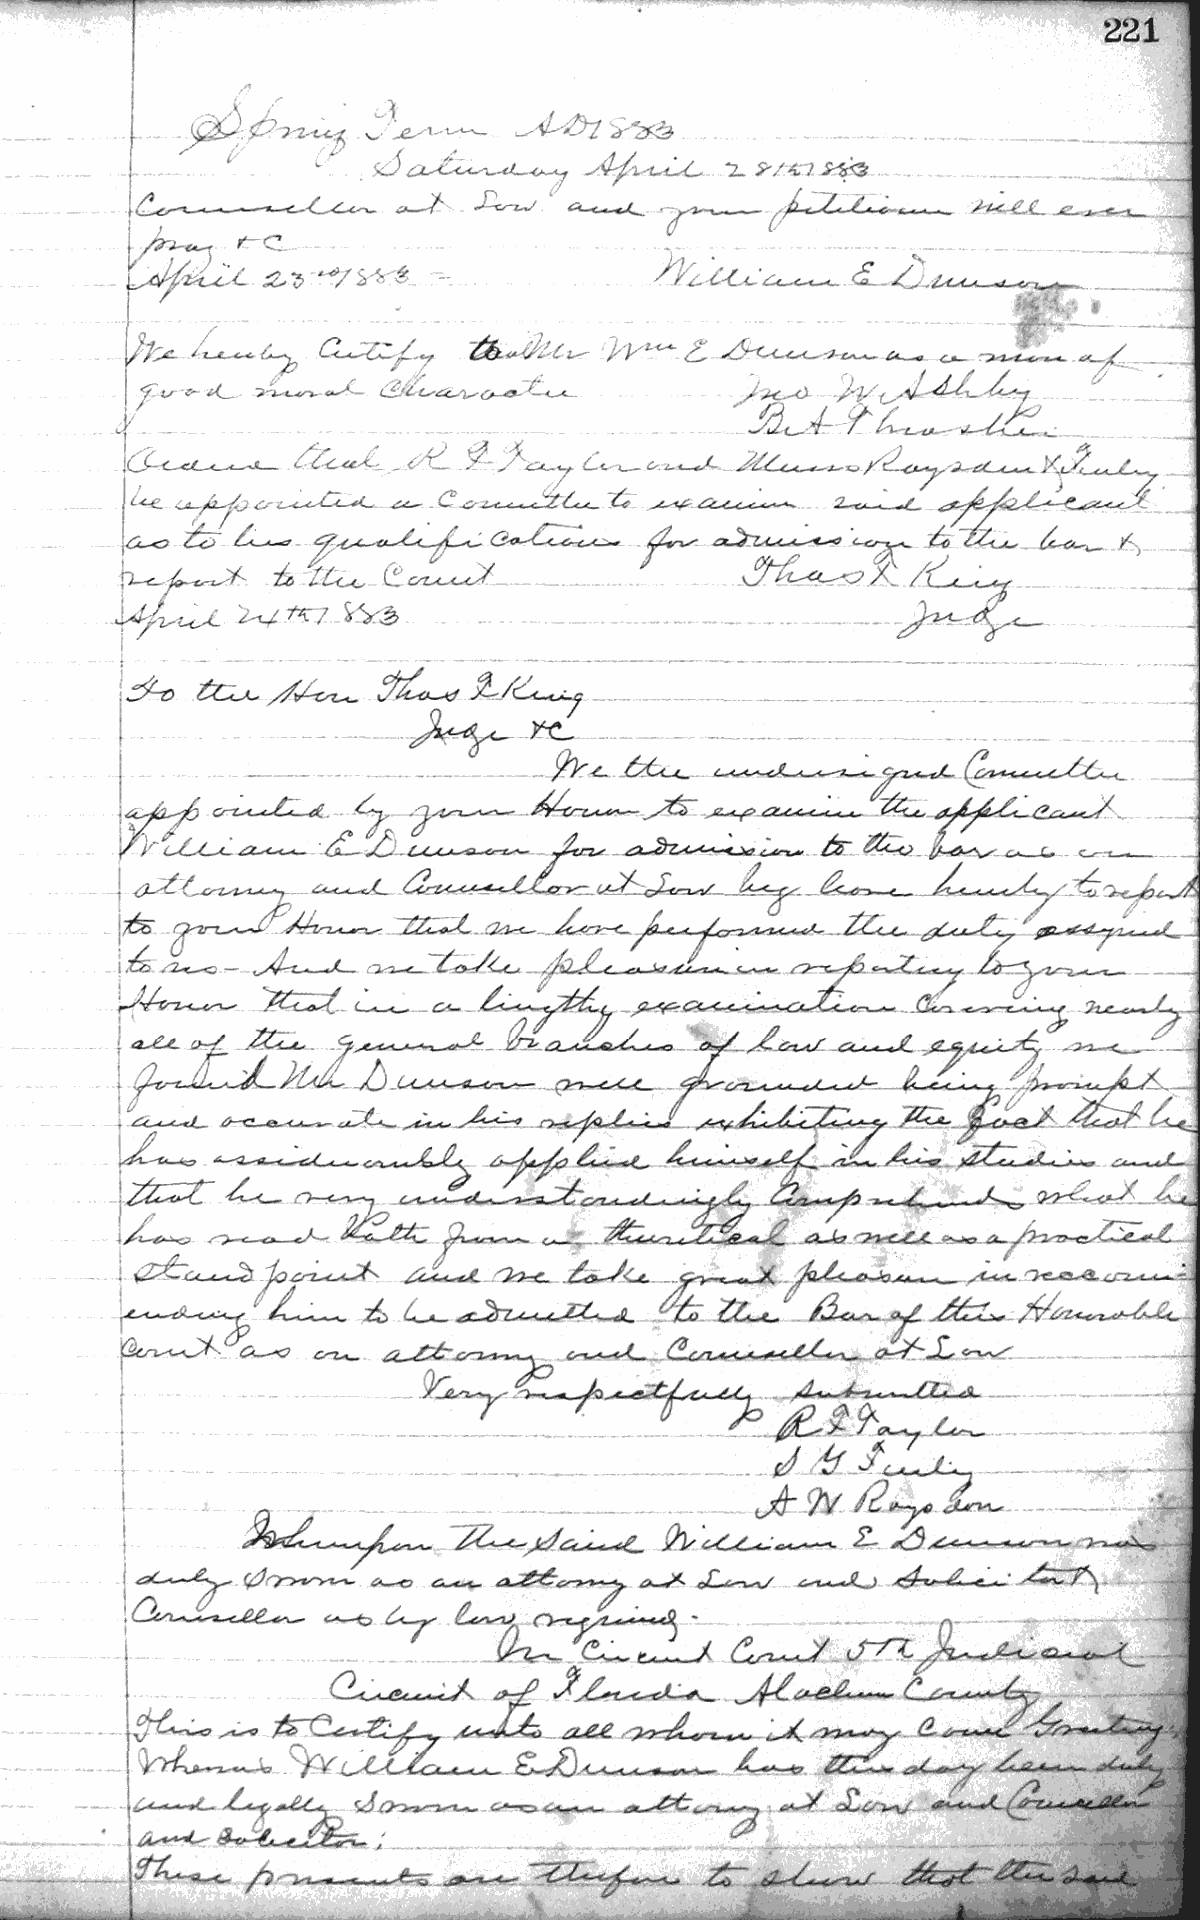 221
Spring Term AD 1883
Saturday April 28th 1883
Counsellor at Law and your petitioner will ever
pray &C
April 23rd 1883 = William E Dunson
We hereby Certify that Mr Wm E Dunson as a man of
good moral Character Jno W Ashby
B A Thrasher
Ordered that R F Taylor and Messrs Roysdon & Finley
be appointed a Committee to examine said applicant
as to his qualifications for admission to the bar &
report to the Court Thos F King
April 24th 1883 Judge
To the Hon Thos F King
Judge &C
We the undersigned Committee
appointed by your Honor to examine the applicant
William E Dunson for admission to the bar as an
attorney and Counsellor at Law beg leave hereby to report
to your Honor that we have performed the duty assigned
to us - And we take pleasure in reporting to your
Honor that in a lengthy examination Covering nearly
all of the general branches of law and equity we
found Mr Dunson well grounded being prompt
and accurate in his replies exhibiting the fact that he
has assiduously applied himself in his studies and
that he very understandingly Comprehends what he
has read both from a theoritical as well as a practical
stand point and we take great pleasure in reccomm-
ending him to be admitted to the Bar of this Honorable
Court as an attorney and Counsellor at Law
Very respectfully submitted
R F Taylor
S Y Finley
A W Roysdon
Whereupon the said William E Dunson was
duly sworn as an attorney at Law and Solicitor &
Counsellor as by law required.
In Circuit Court 5th Judicial
Circuit of Florida Alachua County
This is to Certify unto all whom it may Come Greeting;
Whereas William E Dunson has this day been duly
and legally sworn as an attorney at Law and Counsellor
and Solicitor;
These presents are therefore to show that the said